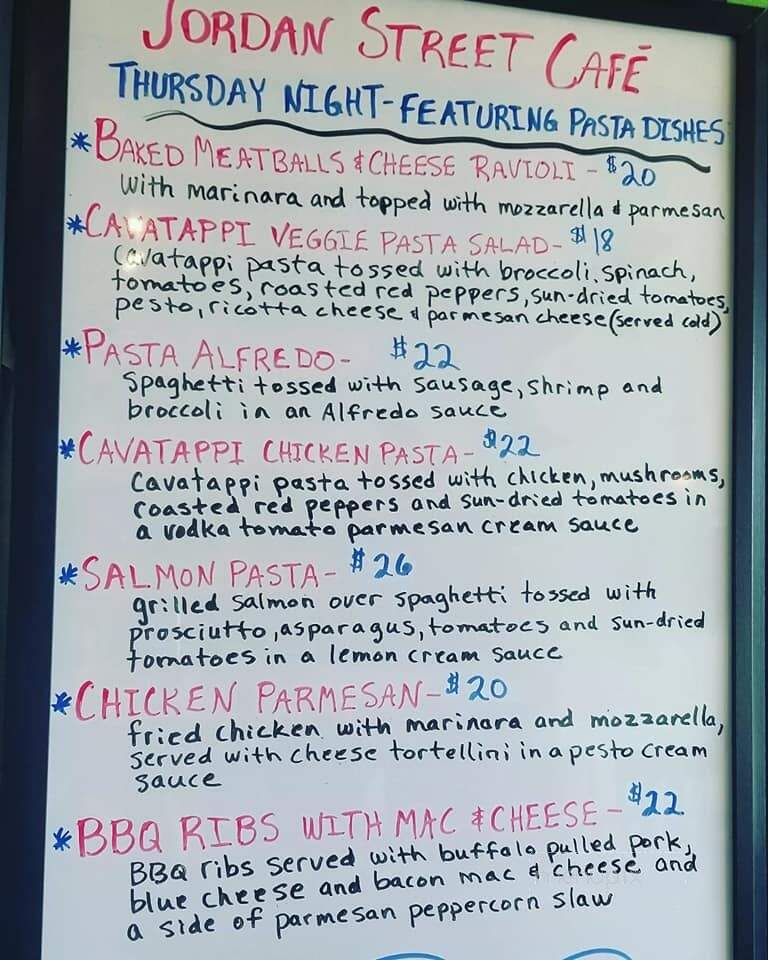 JORDAN STREET CAFĒ
THURSDAY NIGHT-FEATURING PASTA DISHES
*BAKED MEATBALLS & CHEESE RAVIOLI - $20
with marinara and topped with mozzarella & parmesan
*CAVATAPPI VEGGIE PASTA SALAD- $18
Cavatappi pasta tossed with broccoli, spinach,
tomatoes, roasted red peppers, sun-dried tomatoes,
pesto, ricotta cheese & parmesan cheese (served cold)
*PASTA ALFREDO- $22
Spaghetti tossed with sausage, shrimp and
broccoli in an Alfredo sauce
*CAVATAPPI CHICKEN PASTA- $22
Cavatappi pasta tossed with chicken, mushrooms,
roasted red peppers and sun-dried tomatoes in
a vodka tomato parmesan cream sauce
*SALMON PASTA- $26
grilled salmon over spaghetti tossed with
prosciutto, asparagus, tomatoes and sun-dried
tomatoes in a lemon cream sauce
*CHICKEN PARMESAN- $20
fried chicken with marinara and mozzarella,
served with cheese tortellini in a pesto cream
sauce
*BBQ RIBS WITH MAC & CHEESE - $22
BBQ ribs served with buffalo pulled pork,
blue cheese and bacon mac & cheese and
a side of parmesan peppercorn slaw